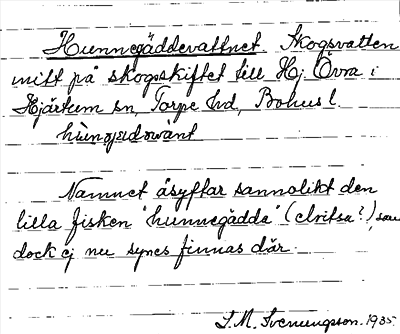 Hunnegäddevattnet. Skogsvatten
mitt på skogsskiftet till Hj. Övra i
Hjärtum sn, Torpe hd, Bohusl.
Namnet åsyftar sannolikt den
lilla fisken "hunnegädda" (elritsa?), som
dock ej nu synes finnas där.
S.M. Svenungson. 1935.